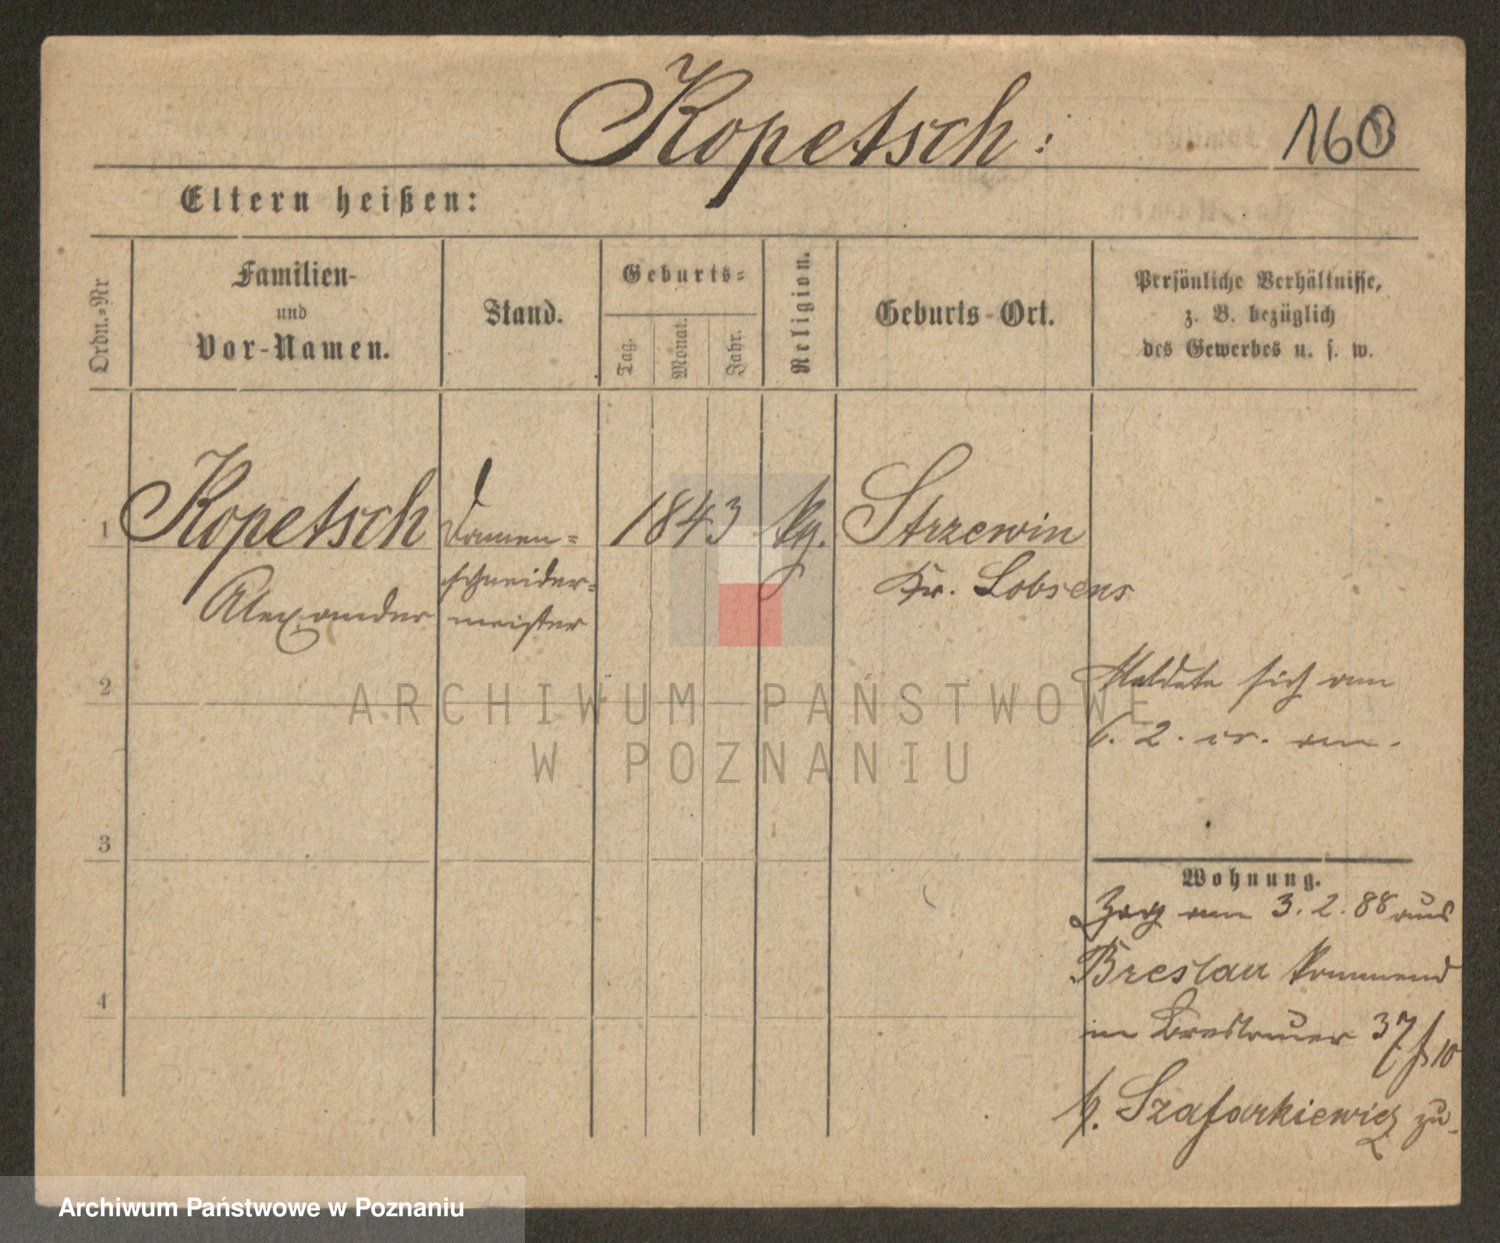 Kopetsch: 160
Eltern heißen:
Ordn.=Nr
Familien-
und
Vor-Namen.
Stand.
Geburts=
Tag.
Monat.
Jahr.
Religion.
Geburts-Ort.
Persönliche Verhältnisse,
z. B. bezüglich
des Gewerbes u. s. w.
1 Kopetsch Damen= 1843 kg. Strzewin
Alexander schneider= Kr. Lobsens
meister
2
Meldete sich am
6. 2. cr. an.
3
Wohnung.
Zog am 3. 2. 88 aus
Breslau kommend
4
in Breslauer 37/10
b. Szafarkiewicz zu.
ARCHIWUM PAŃSTWOWE
W POZNANIU
Archiwum Państwowe w Poznaniu